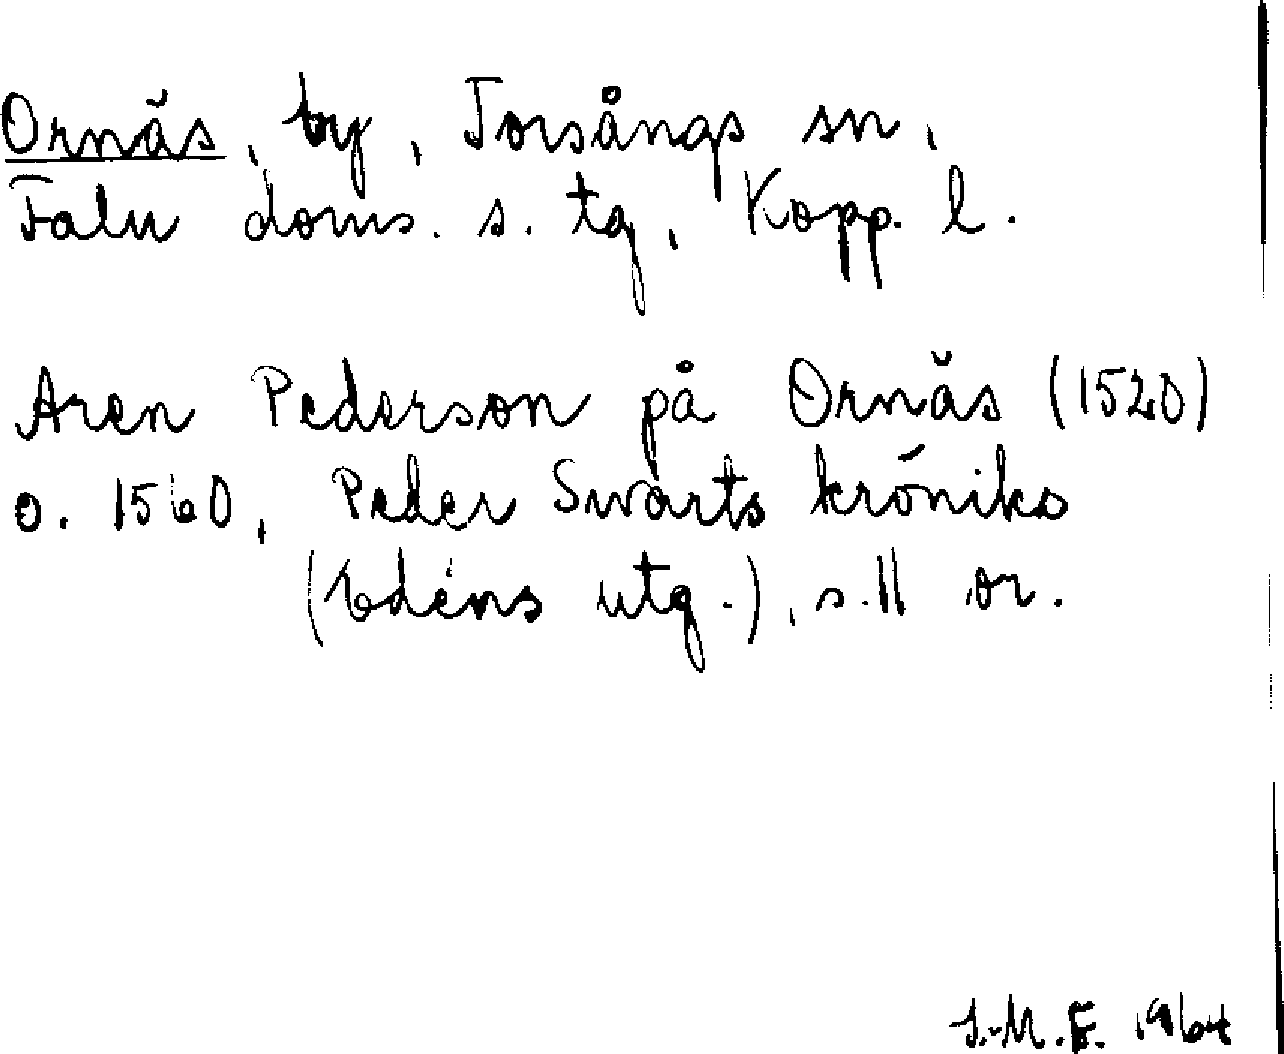 Ornäs, by, Torsångs sn,
Falu doms. s. tg, Kopp. l.
Aren Pederson på Ornäs (1520)
o. 1560, Peder Swarts krönika
(Edéns utg.), s. 11 or.
1964